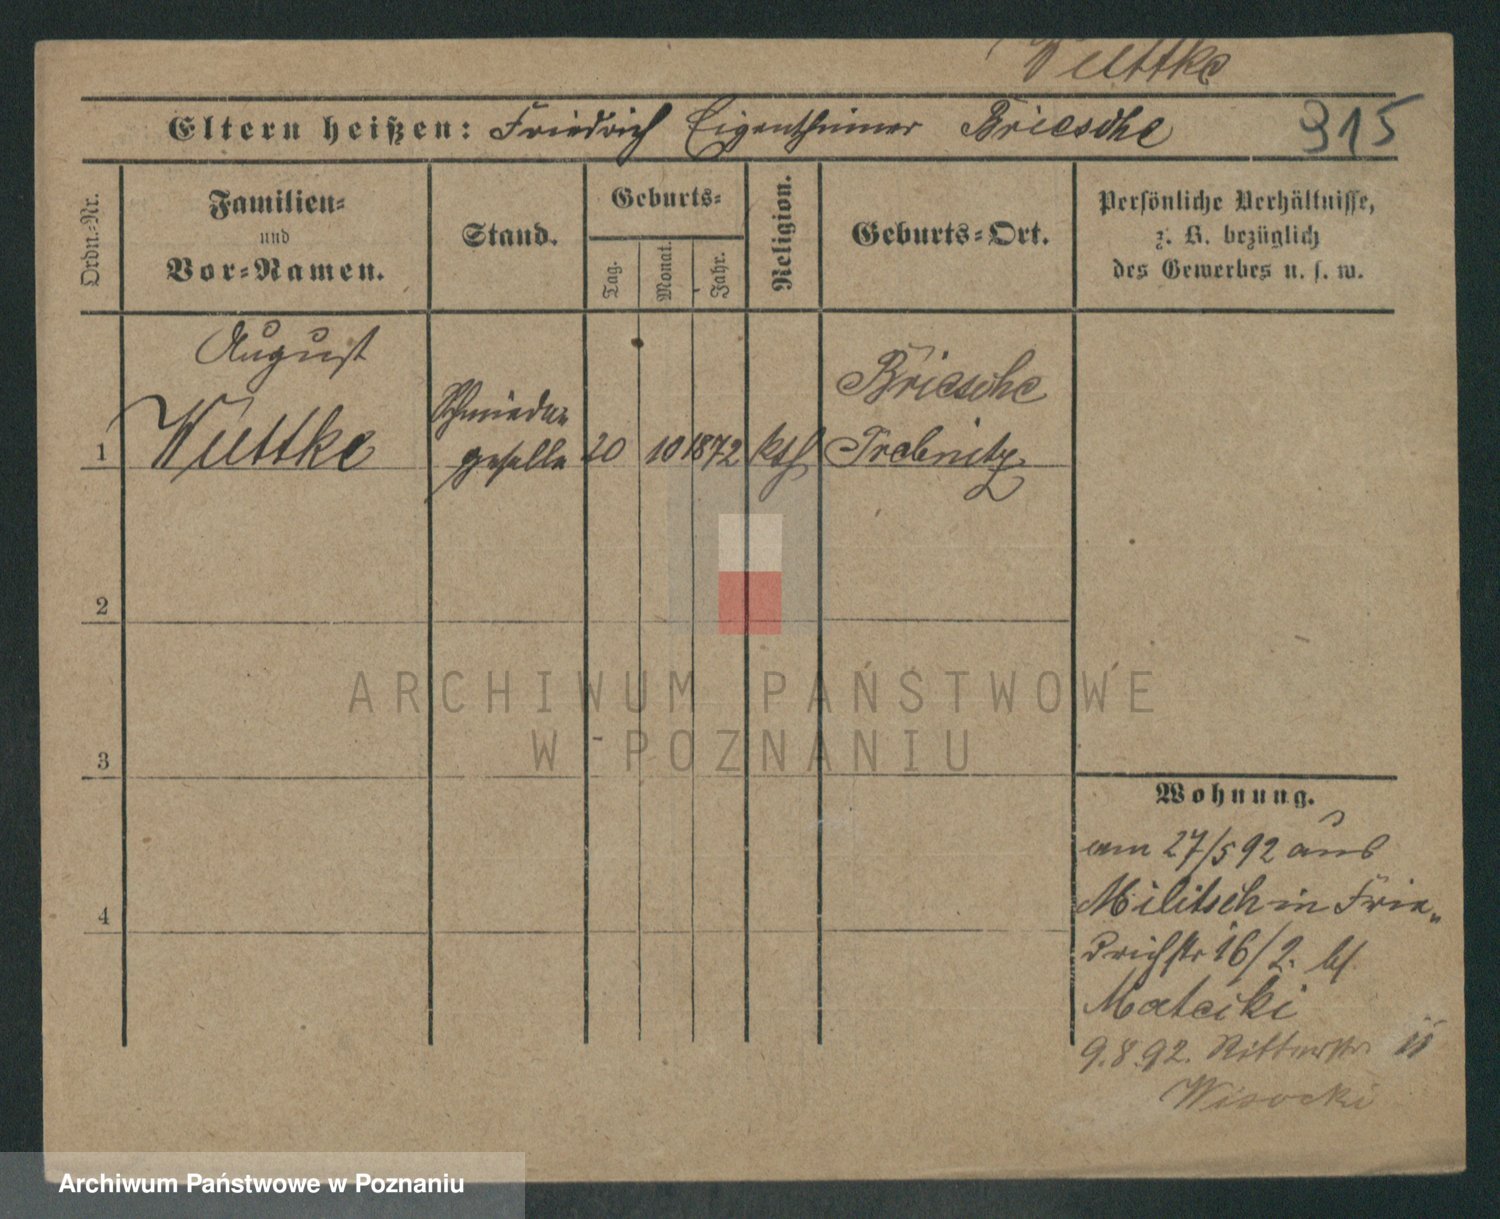 Wuttke
Eltern heißen: Friedrich Eigenthümer Briesche
315
Ordn.-Nr.
Familien-
und
Vor-Namen.
Stand.
Geburts-
Tag.
Monat.
Jahr.
Religion.
Geburts-Ort.
Persönliche Verhältnisse,
z. B. bezüglich
des Gewerbes u. s. w.
August
1 Wuttke
Schmiede-
geselle
20 10 1872 kth
Briesche
Trebnitz
2
3
4
Wohnung.
am 27/5 92 aus
Militsch in Frie-
drichstr 16/2. bf
Matecki
9.8.92. Ritterstr 11
Wisocki
ARCHIWUM PAŃSTWOWE
W POZNANIU
Archiwum Państwowe w Poznaniu